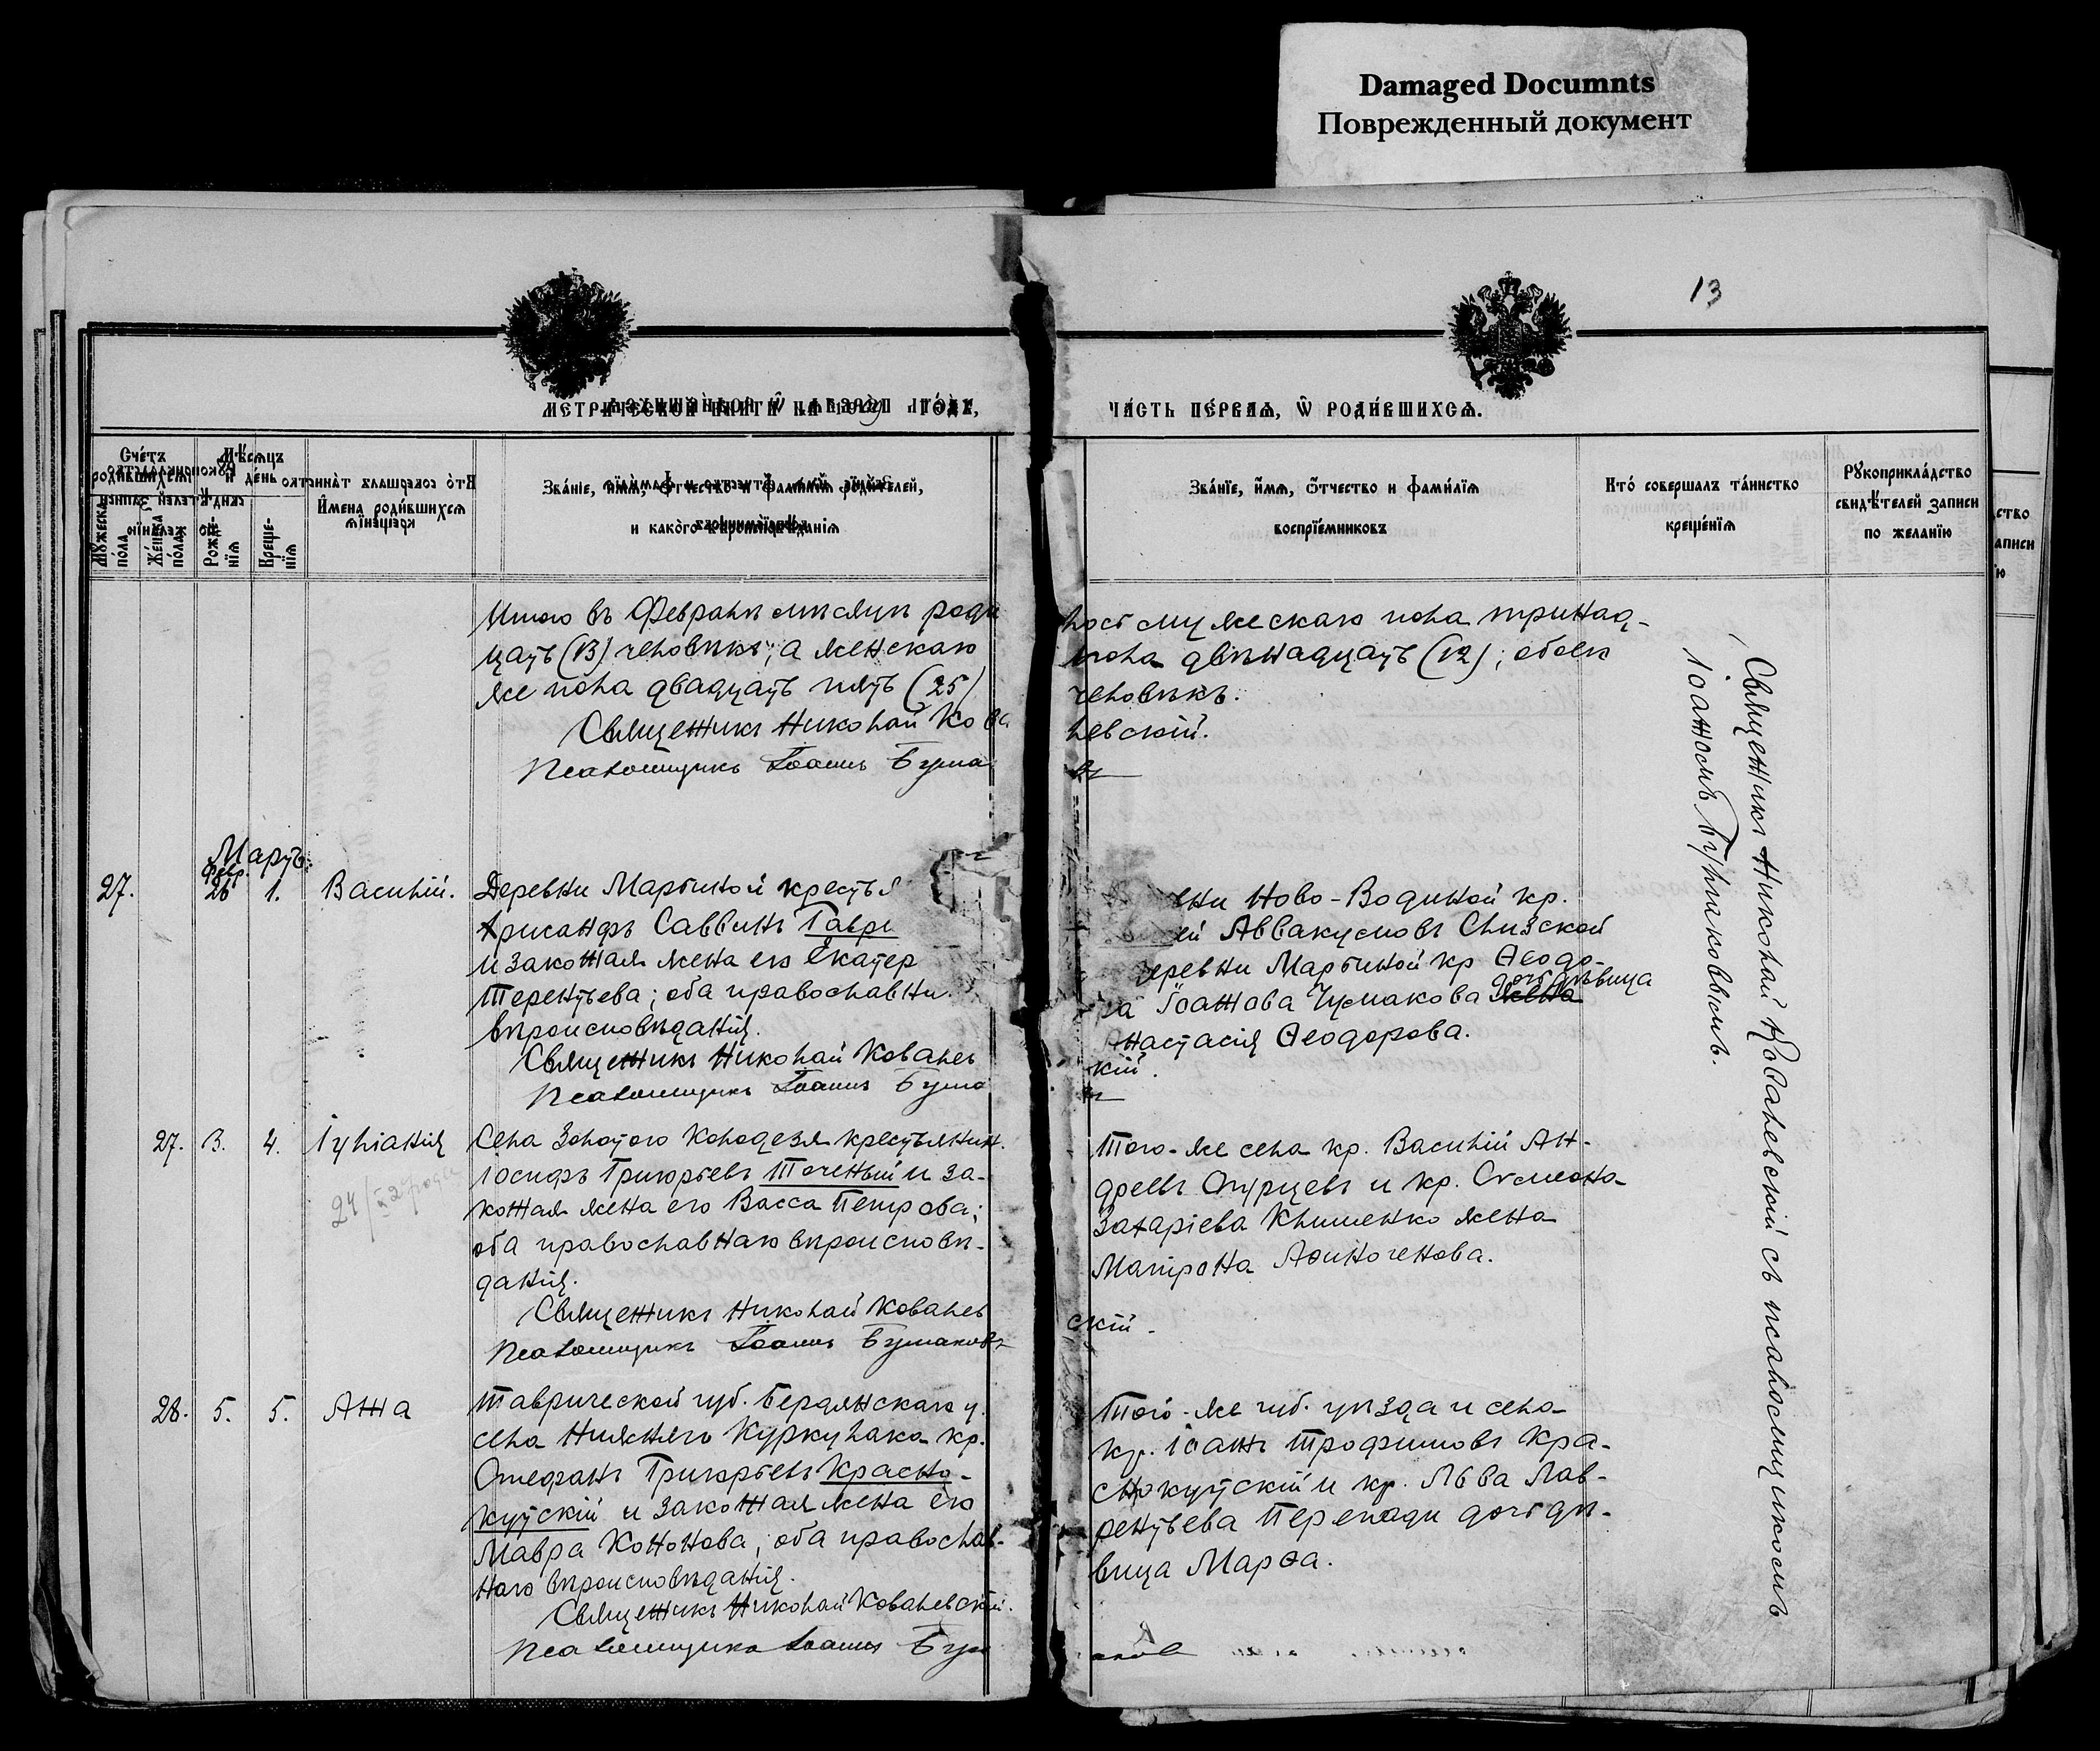 Damaged Documnts
Поврежденный документ
13
МЕТРИЧЕСКОЙ КНИГИ НА ГОДЪ,
ЧАСТЬ ПЕРВАЯ, Ѡ РОДИВШИХСЯ.
Счетъ родившихся
Мужеска пола
Женска пола
Мѣсяцъ и день
Рожденія
Крещенія
Имена родившихся
Званіе, имя, отчество и фамилія родителей,
и какого вѣроисповѣданія
Званіе, имя, отчество и фамилія
воспріемниковъ
Кто совершалъ таинство
крещенія
Рукоприкладство
свидѣтелей записи
по желанію
ство
аписи
ю
Итого въ Февралѣ мѣсяцѣ роди
лось мужескаго пола тринад-
цать (13) человѣкъ; а женскаго
пола двѣнадцать (12); обоего
же пола двадцать пять (25)
человѣкъ.
Священникъ Николай Кова
левскій.
Псаломщикъ Іоаннъ Бурла
Мартъ.
27.
Февр. 28
1.
Василій.
Деревни Марьиной крестья
Хрисанфъ Саввинъ Гаври
и законная жена его Екатер
Терентьева; оба православн
вѣроисповѣданія.
Священникъ Николай Ковалев
Псаломщикъ Іоаннъ Бурла
вни Ново-Водиной кр.
ей Аввакумовъ Слизской
деревни Марьиной кр Ѳеодо-
ра Іоаннова Чумакова жена дочь дѣвица
Анастасія Ѳеодорова.
кій.
27.
3.
4.
Іуліанія
24/II 2 года
Села Золотого Колодезя крестьянин.
Іосифъ Григорьевъ Точеный и за-
конная жена его Васса Петрова;
оба православнаго вѣроисповѣ-
данія.
Священникъ Николай Ковалев
Псаломщикъ Іоаннъ Бурлаковъ
Того-же села кр. Василій Ан-
дреевъ Огурцевъ и кр. Симеона
Захаріева Клименко жена
Матрона Аѳиногенова.
скій.
28.
5.
5.
Анна
Таврической губ. Бердянскаго у.
села Нижняго Куркулака кр.
Стефанъ Григорьевъ Красно-
кутскій и законная жена его
Мавра Кононова; оба православ-
наго вѣроисповѣданія.
Священникъ Николай Ковалевскій.
Псаломщикъ Іоаннъ Бурл
Того-же губ. уѣзда и села
кр. Іоаннъ Трофимовъ Кра-
снокутскій и кр. Льва Лав-
рентьева Перепади дочь дѣ-
вица Марѳа.
аковъ
Священникъ Николай Ковалевскій съ псаломщикомъ
Іоанномъ Бурлаковымъ.